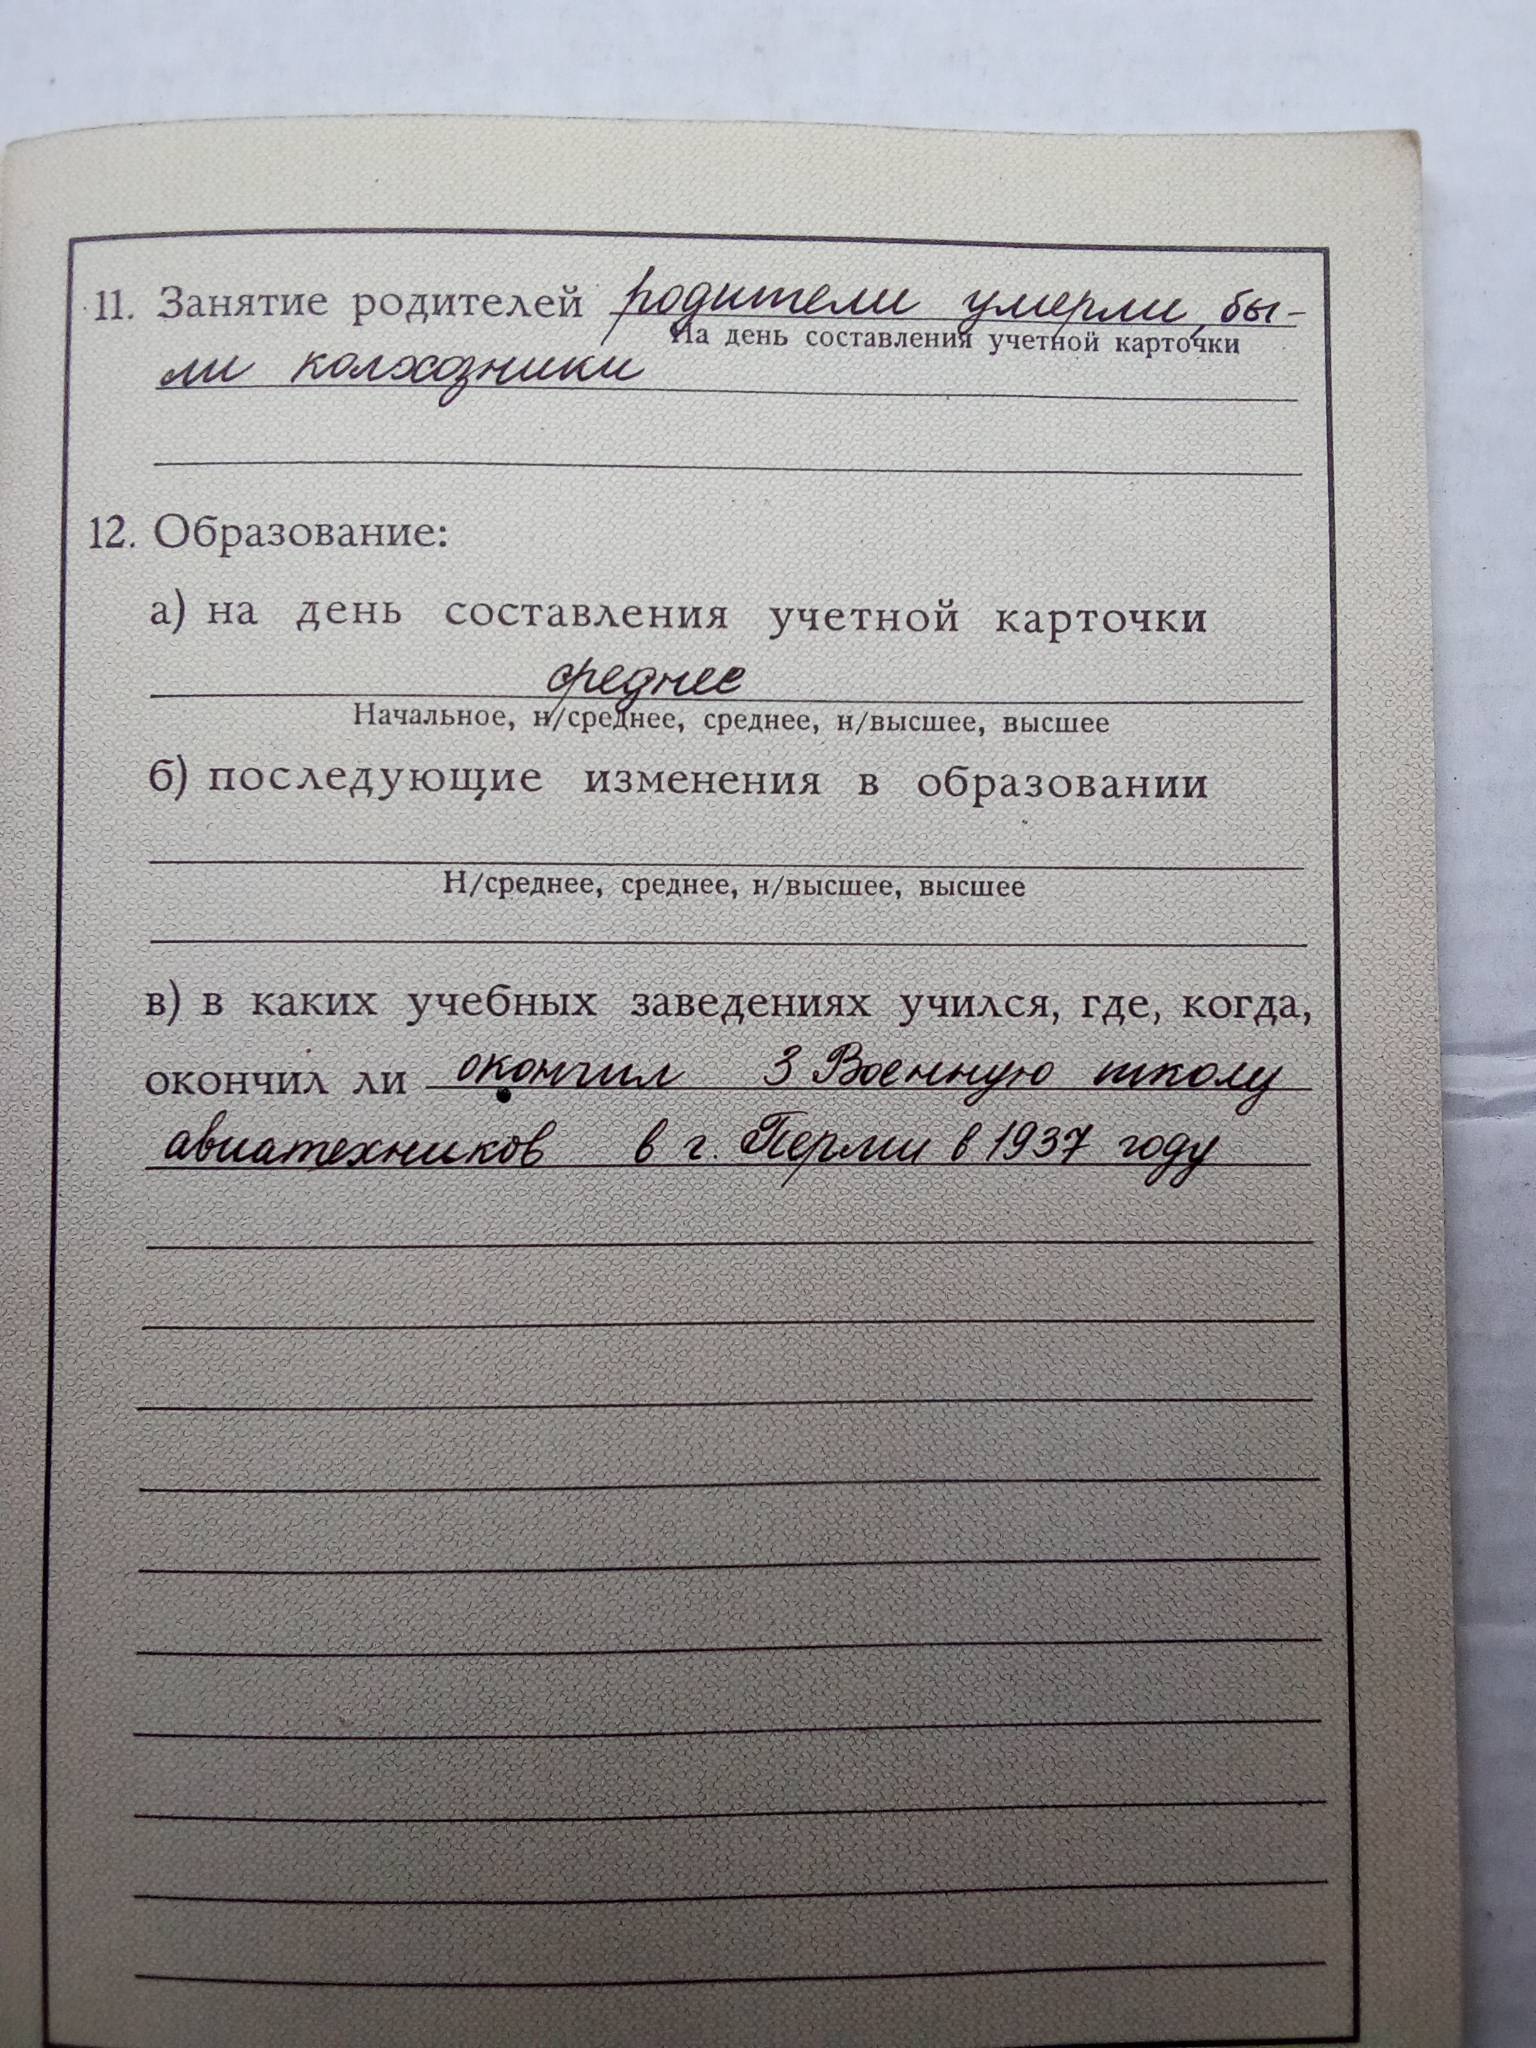 11. Занятие родителей родители умерли, бы-
На день составления учетной карточки
ли колхозники
12. Образование:
а) на день составления учетной карточки
среднее
Начальное, н/среднее, среднее, н/высшее, высшее
б) последующие изменения в образовании
Н/среднее, среднее, н/высшее, высшее
в) в каких учебных заведениях учился, где, когда,
окончил ли окончил 3 Военную школу
авиатехников в г. Перми в 1937 году